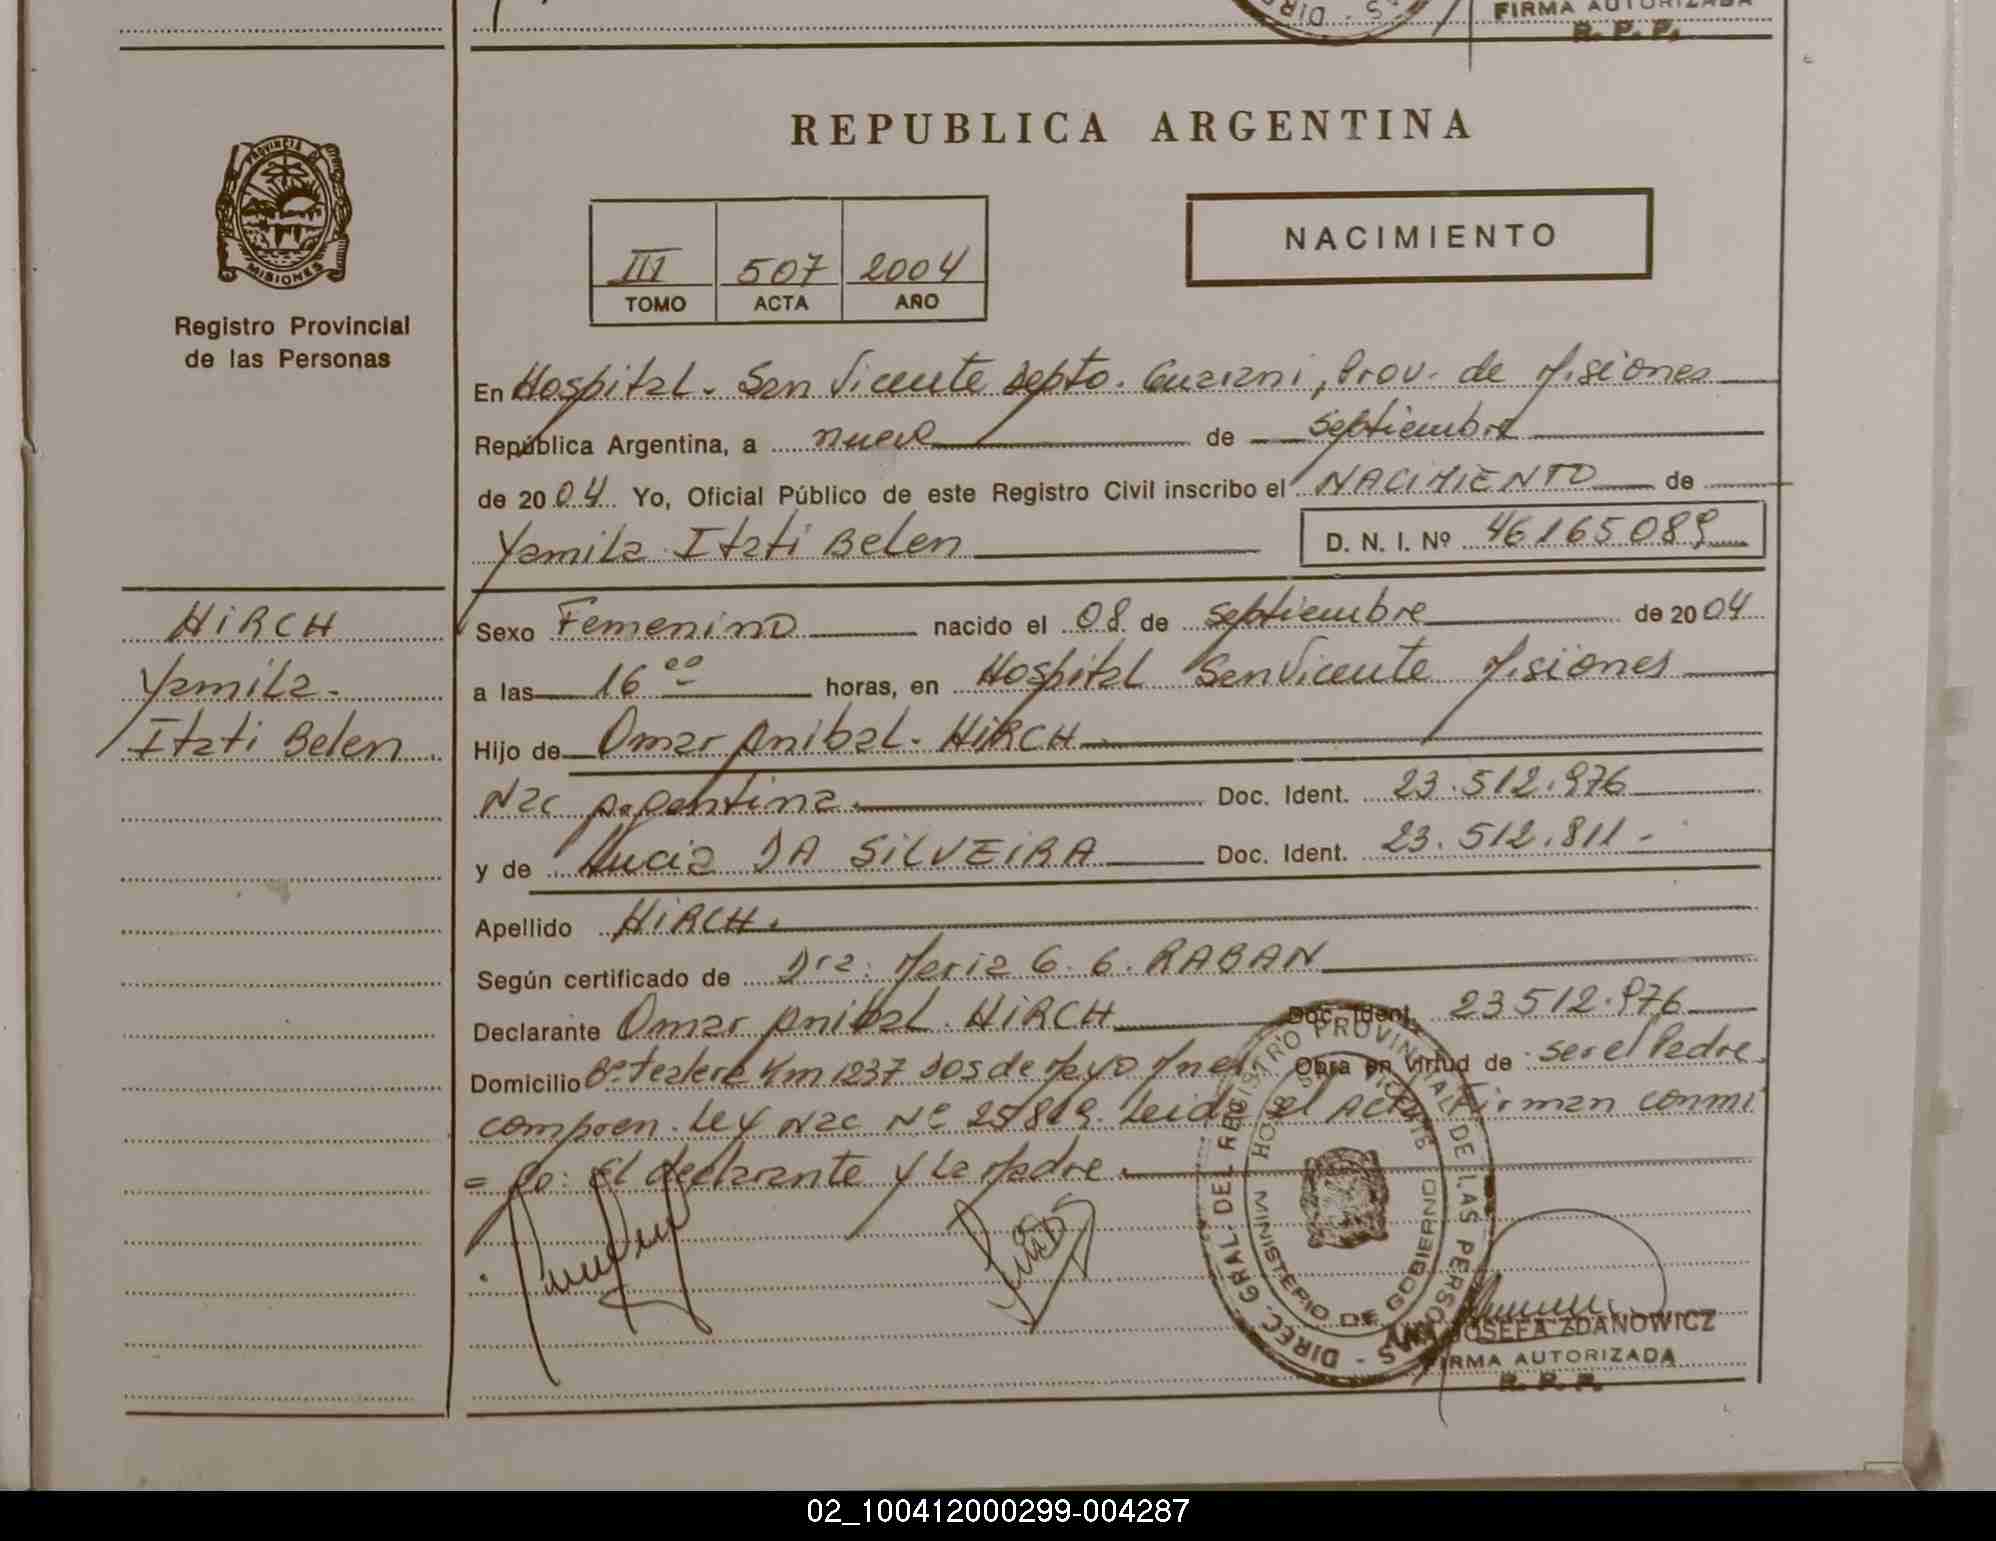 FIRMA AUTORIZADA
R. P. P.
PROVINCIA DE
MISIONES
Registro Provincial
de las Personas
REPUBLICA ARGENTINA
III 507 2004
TOMO ACTA AÑO
NACIMIENTO
En Hospital. San Vicente Depto. Guarani, Prov. de Misiones
República Argentina, a nueve de septiembre
de 2004 Yo, Oficial Público de este Registro Civil inscribo el NACIMIENTO de
Yamila Itati Belen D. N. I. Nº 46165089
HiRCH
Yamila.
Itati Belen
Sexo Femenino nacido el 08 de septiembre de 2004
a las 16 oo horas, en Hospital San Vicente Misiones
Hijo de Omar Anibal. HiRCH
Nac Argentina. Doc. Ident. 23.512.976
y de Lucia DA SiLVEiRA Doc. Ident. 23.512.811.-
Apellido HiRCH.
Según certificado de Dra. Maria G. G. RABAN
Declarante Omar Anibal. HiRCH Doc. Ident. 23512.976
Domicilio Km 1237 Dos de Mayo Mnes Obra en virtud de ser el Padre.
compren. Ley Nac Nº 25819. Leida el Acta Firman conmi
= go: El declarante y la Madre.
DIREC. GRAL. DEL REGISTRO PROVINCIAL DE LAS PERSONAS
MINISTERIO DE GOBIERNO
ANA JOSEFA ZDANOWICZ
FIRMA AUTORIZADA
R. P. P.
02_100412000299-004287